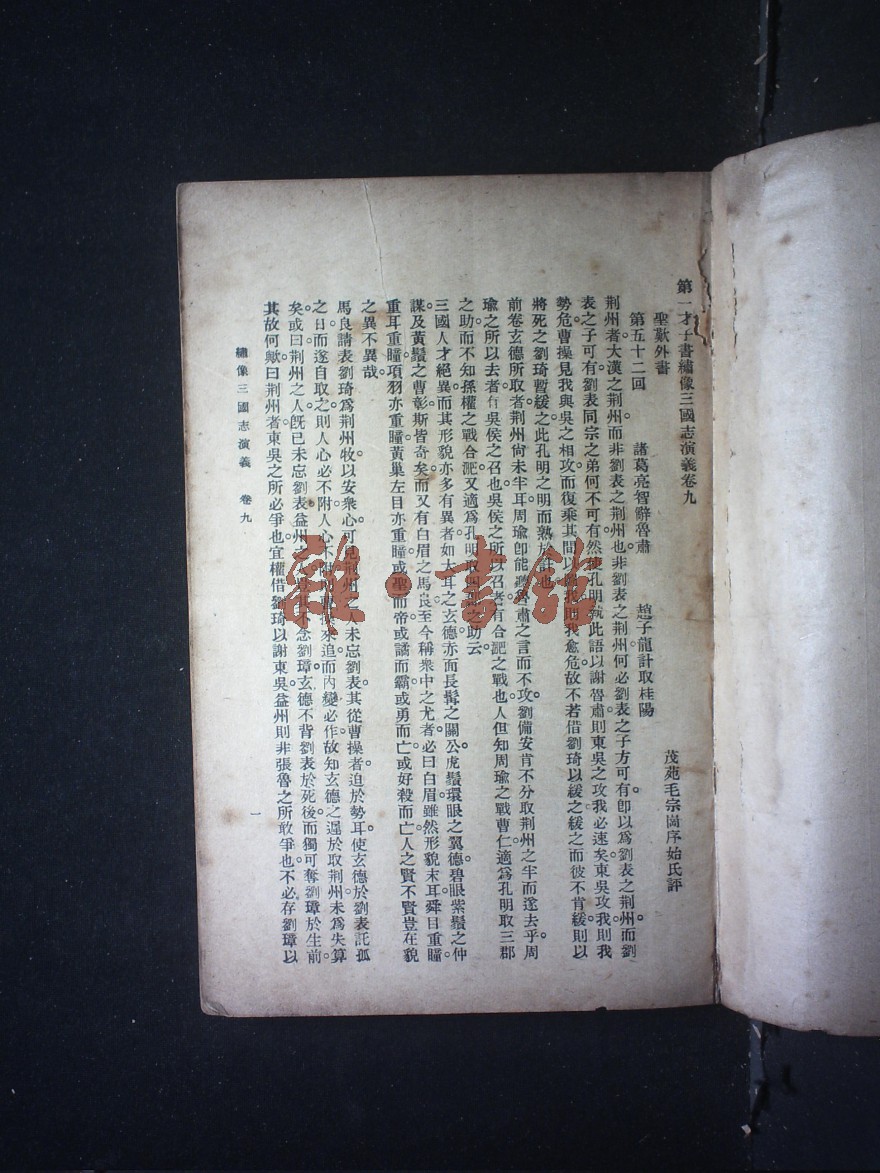 第一才子書繡像三國志演義卷九
聖歎外書
茂苑毛宗崗序始氏評
第五十二回 諸葛亮智辭魯肅 趙子龍計取桂陽
荆州者大漢之荆州而非劉表之荆州也非劉表之荆州何必劉表之子方可有卽以爲劉表之荆州而劉
表之子可有劉表同宗之弟何不可有然使孔明執此語以謝魯肅則東吳之攻我必速矣東吳攻我則我
勢危曹操見我與吳之相攻而復乘其間以 我則我愈危故不若借劉琦以緩之緩之而彼不肯緩則以
將死之劉琦暫緩之此孔明之明而熟於計也
前卷玄德所取者荆州尙未半耳周瑜卽能聽魯肅之言而不攻劉備安肯不分取荆州之半而遂去乎周
瑜之所以去者有吳侯之召也吳侯之所以召者有合淝之戰也人但知周瑜之戰曹仁適爲孔明取三郡
之助而不知孫權之戰合淝又適爲孔明取四郡之助云
三國人才絕異而其形貌亦多有異者如大耳之玄德赤面長髯之關公虎鬚環眼之翼德碧眼紫鬚之仲
謀及黃鬚之曹彰斯皆奇矣而又有白眉之馬良至今稱衆中之尤者必曰白眉雖然形貌末耳舜目重瞳
重耳重瞳項羽亦重瞳黃巢左目亦重瞳或聖而帝或譎而霸或勇而亡或好殺而亡人之賢不賢豈在貌
之異不異哉
馬良請表劉琦爲荆州牧以安衆心可見荆州之人未忘劉表其從曹操者迫於勢耳使玄德於劉表託孤
之日而遂自取之則人心必不附人心不附則曹操來追而內變必作故知玄德之遲於取荆州未爲失算
矣或曰荆州之人旣已未忘劉表益州之人豈其不念劉璋玄德不背劉表於死後而獨可奪劉璋於生前
其故何歟曰荆州者東吳之所必爭也宜權借劉琦以謝東吳益州則非張魯之所敢爭也不必存劉璋以
繡像三國志演義 卷九
一
雜·書館